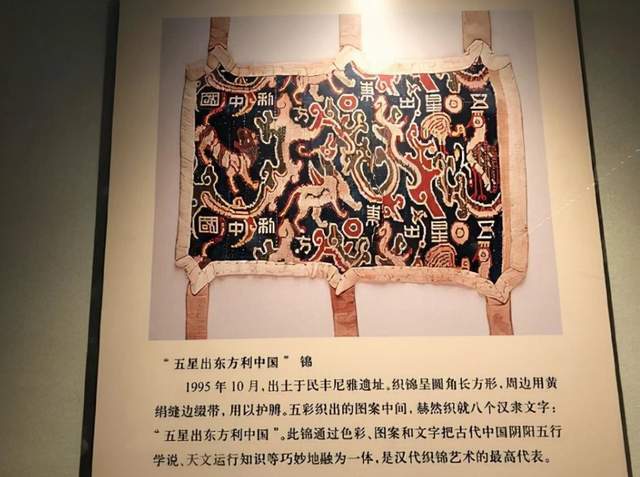 國中利 東出星五
國中利 東出星五
“五星出东方利中国” 锦
1995年10月,出土于民丰尼雅遗址。织锦呈圆角长方形,周边用黄
绢缝边缀带,用以护膊。五彩织出的图案中间,赫然织就八个汉隶文字:
“五星出东方利中国”。此锦通过色彩、图案和文字把古代中国阴阳五行
学说、天文运行知识等巧妙地融为一体,是汉代织锦艺术的最高代表。